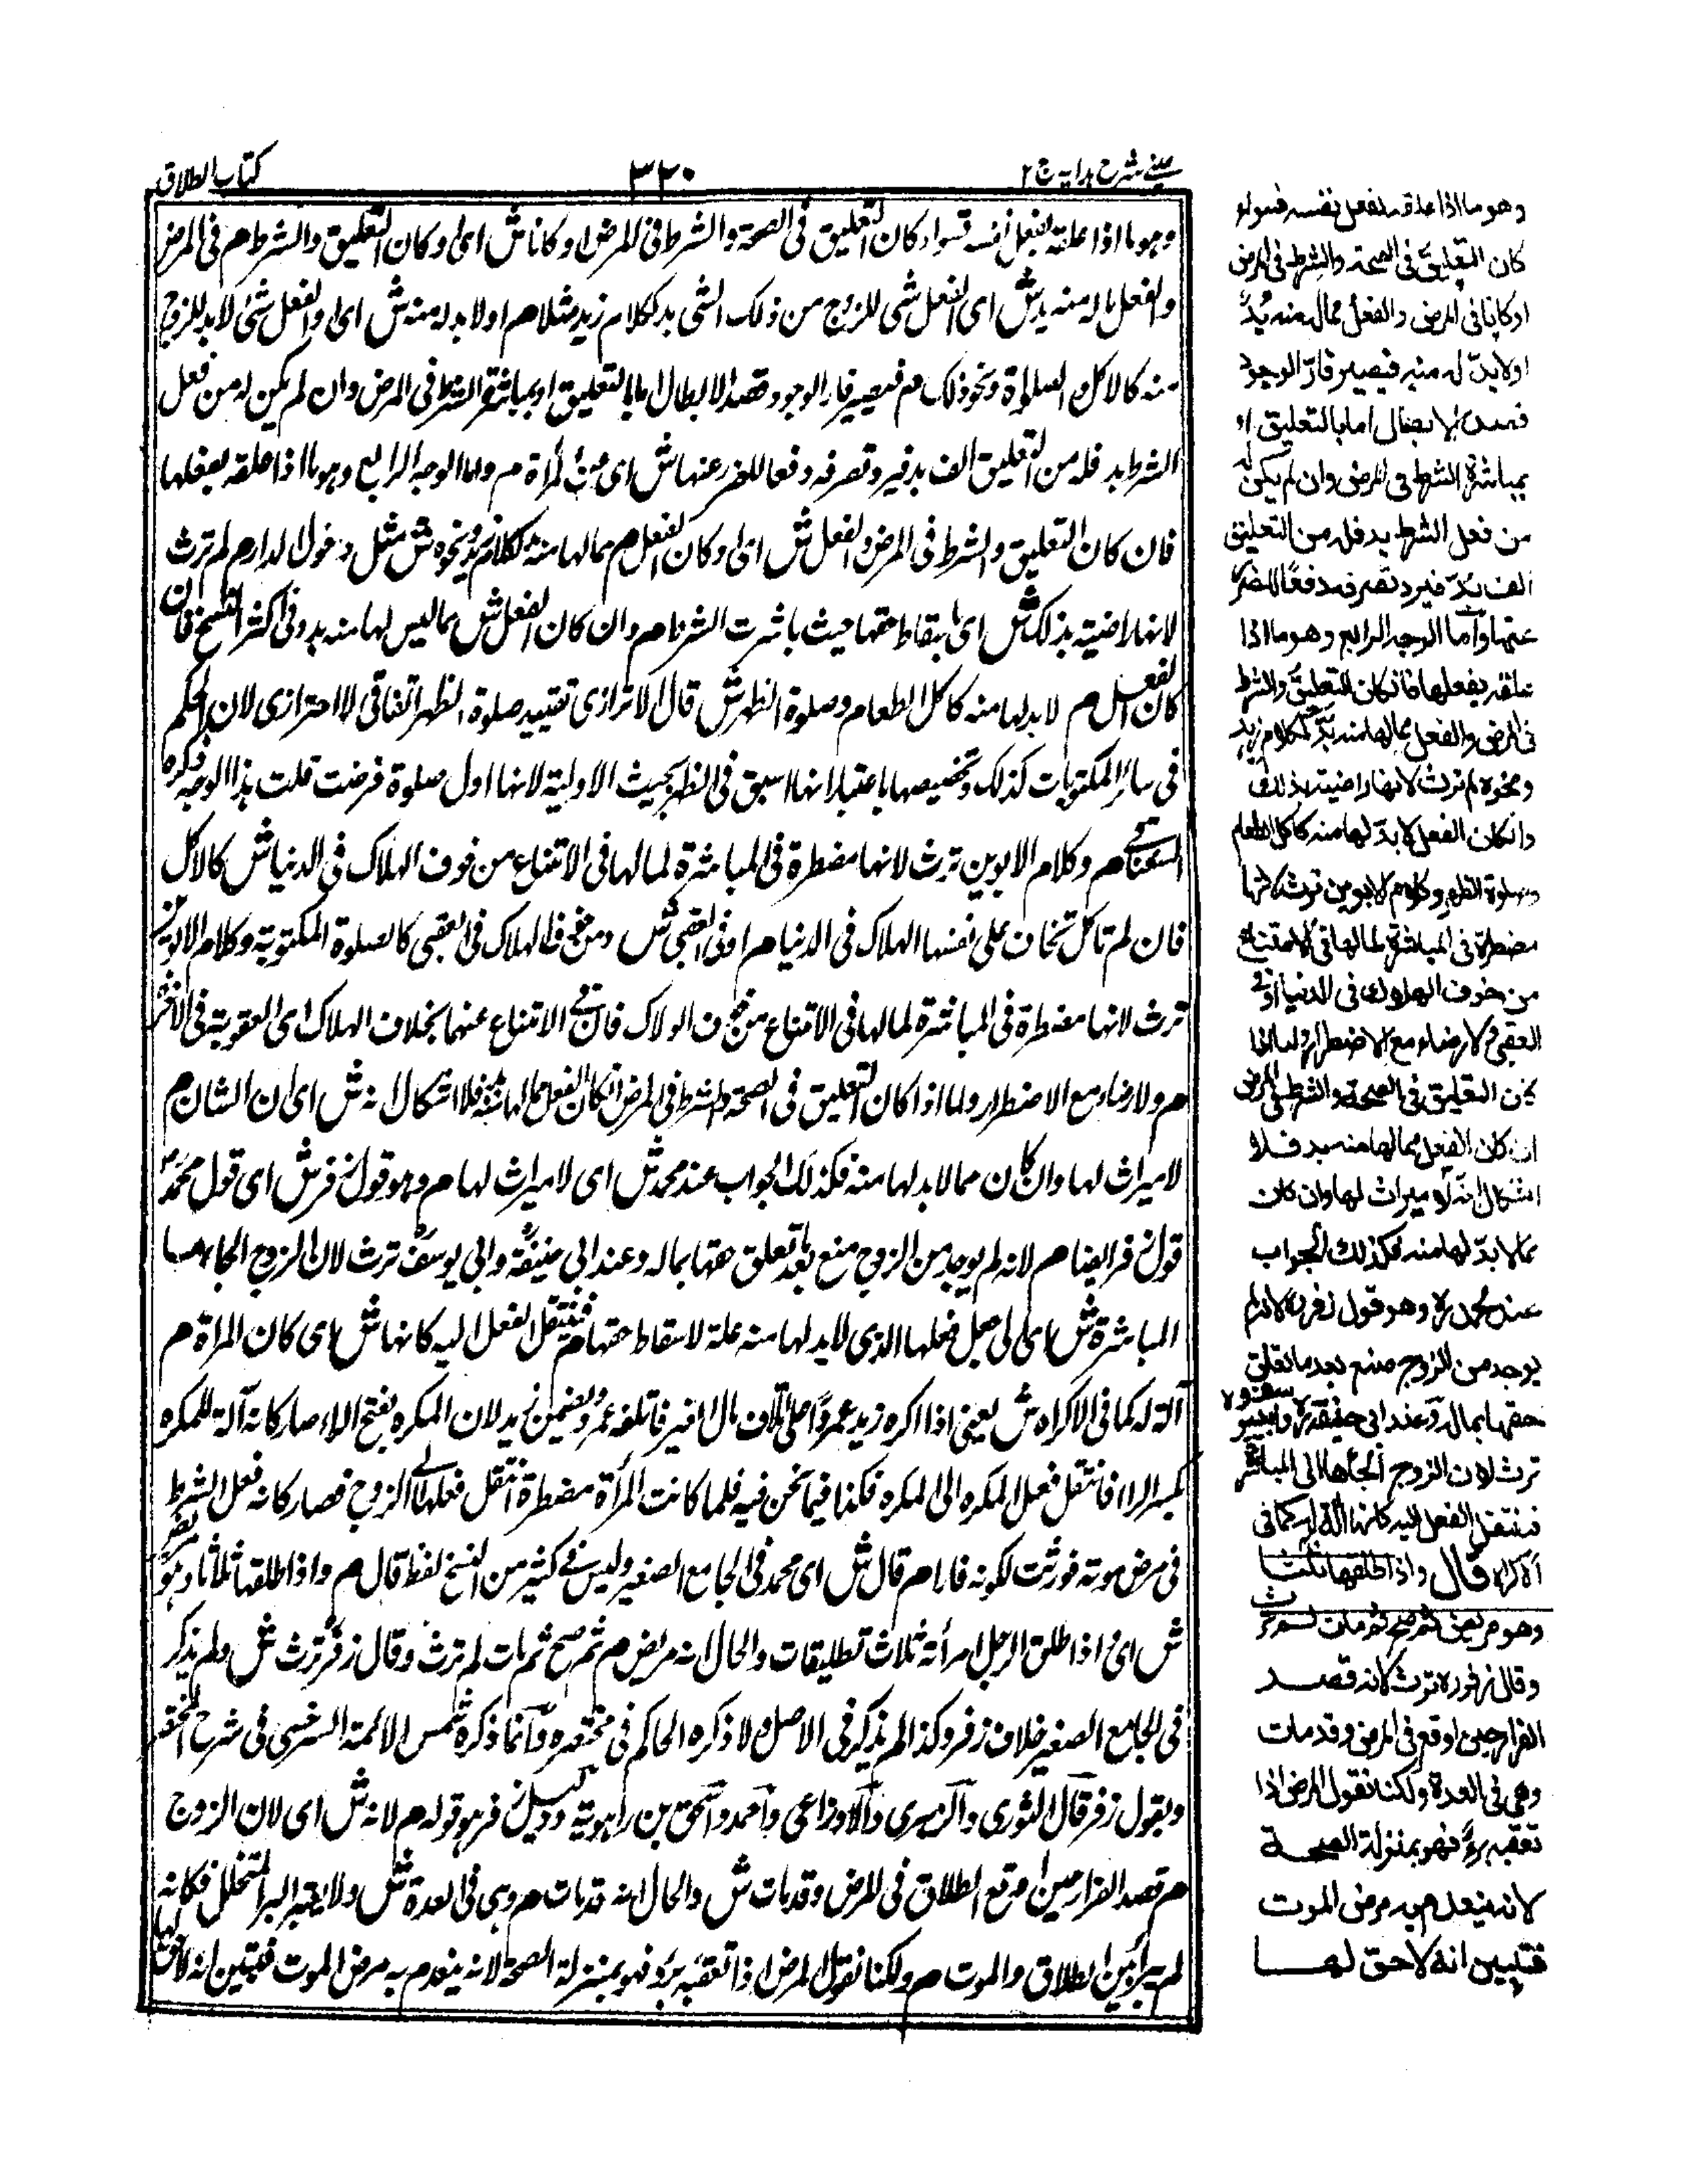 عيني شرح هدايه ج ٢
٣٢٠
كتاب الطلاق
وهو ما اذا علقه بفعل نفسه فسواء كان التعليق فى الصحة والشرط فى المرض او كانا ش اى او كان التعليق والشرط م فى المرض
والفعل ما له منه بد ش اى الفعل شى للزوج من ذلك الشى بد ككلام زيد مثلا م او لا بد له منه ش اى والفعل شئ لا بد للزوج
منه كالاكل والصلوة ونحو ذلك م فيصير فارا لوجود قصد الابطال اما بالتعليق او بمباشرة الشرط فى المرض وان لم يكن له من فعل
الشرط بد فله من التعليق الف بد فيرد تصرفه دفعا للضرر عنها ش اى عن المرأة م واما الوجه الرابع وهو ما اذا علقه بفعلها
فان كان التعليق والشرط فى المرض والفعل ش اى او كان الفعل م مما لها منه بد ككلام زيد ونحوه ش مثل دخول الدار م لم ترث
لانها راضية بذلك ش اى باسقاط حقها حيث باشرت الشرط م وان كان الفعل ش مما ليس لها منه بد وفى اكثر النسخ فان
كان الفعل م لا بد لها منه كاكل الطعام وصلوة الظهر ش قال الاترازى تقييد صلوة الظهر اتفاقى لا احترازى لان الحكم
فى سائر المكتوبات كذلك وتخصيصها باعتبار انها اسبق فى الظهر بحيث الاولية لانها اول صلوة فرضت قلت هذا الوجه ذكره
السغناقى م وكلام الابوين ترث لانها مضطرة فى المباشرة لما لها فى الامتناع من خوف الهلاك فى الدنيا ش كالاكل
فان لم تاكل تخاف على نفسها الهلاك فى الدنيا م او فى العقبى ش ومن خوف الهلاك فى العقبى كالصلوة المكتوبة وكلام الابوين
ترث لانها مضطرة فى المباشرة لما لها فى الامتناع من خوف الهلاك فان فى الامتناع عنهما يخاف الهلاك اى العقوبة فى الاخرة
م ولا رضاء مع الاضطرار واما اذا كان التعليق فى الصحة والشرط فى المرض ان كان الفعل مما لها منه بد فلا اشكال انه ش اى ان الشان م
لا ميراث لها وان كان مما لا بد لها منه فكذلك الجواب عند محمد ش اى لا ميراث لها م وهو قول زفر ش اى قول محمد
قول زفر ايضا م لانه لم يوجد من الزوج صنع بعد ما تعلق حقها بماله وعند ابى حنيفة وابى يوسف ترث لان الزوج الجأها
المباشرة ش اى الى جعل فعلها الذى لا بد لها منه علة لاسقاط حقها م فينتقل الفعل اليه كانها ش اى كان المراة م
آلة له كما فى الاكراه ش يعنى اذا اكره زيد عمروا على اتلاف مال الغير فاتلفه عمرو يضمن زيد لان المكره بفتح الراء صار كانه آلة للمكره
بكسر الراء فانتقل فعل المكره الى المكره فكذا فيما نحن فيه فلما كانت المرأة مضطرة انتقل فعلها الى الزوج فصار كانه فعل الشرط
فى مرض موته فورثت لكونه فارا م قال ش اى محمد فى الجامع الصغير وليس فى كثير من النسخ لفظ قال م واذا طلقها ثلاثا وهو مريض
ش اى اذا طلق الرجل امرأته ثلاث تطليقات والحال انه مريض م ثم صح ثم مات لم ترث وقال زفر ترث ش ولم يذكر
فى الجامع الصغير خلاف زفر وكذا لم يذكر فى الاصل ولا ذكره الحاكم فى مختصره وانما ذكره شمس الائمة السرخسى فى شرح المختصر
وبقول زفر قال الثورى والزهرى والاوزاعى واحمد واسحق بن راهويه ودليل زفر هو قوله م لانه ش اى لان الزوج
م قصد الفرار حين اوقع الطلاق فى المرض وقد مات ش والحال انه قد مات م وهى فى العدة ش ولا يعتبر البرأ المتخلل فكانه
لم يبرأ بين الطلاق والموت م ولكنا نقول المرض اذا تعقبه برؤ فهو بمنزلة الصحة لانه ينعدم به مرض الموت فيتبين انه لا حق لها
وهو ما اذا علقه بفعل نفسه فسواء
كان التعليق فى الصحة والشرط فى المرض
او كانا فى المرض والفعل مما له منه بُدّ
او لا بدّ له منه فيصير فارّا لوجود
قصد الابطال اما بالتعليق او
بمباشرة الشرط فى المرض وان لم يكن له
من فعل الشرط بد فله من التعليق
الف بدّ فيرد تصرفه دفعًا للضرر
عنها وآما الوجه الرابع وهو ما اذا
علقه بفعلها فان كان التعليق والشرط
فى المرض والفعل مما لها منه بدّ ككلام زيد
ونحوه لم ترث لانها راضية بذلك
وان كان الفعل لا بدّ لها منه كاكل الطعام
وصلوة الظهر وكلام الابوين ترث لانها
مضطرة فى المباشرة لما لها فى الامتناع
من خوف الهلاك فى الدنيا او فى
العقبى ولا رضاء مع الاضطرار واما اذا
كان التعليق فى الصحة والشرط فى المرض
ان كان الفعل مما لها منه بد فلا
اشكال انه لا ميراث لها وان كان
مما لا بدّ لها منه فكذلك الجواب
عند محمد ره وهو قول زفر ره لانه لم
يوجد من الزوج صنع بعد ما تعلق
حقها بماله وعند ابى حنيفة ره وابى يوسف ره
ترث لان الزوج الجأها الى المباشرة
فينتقل الفعل اليه كانها آلة له كما فى
الاكراه قال واذا طلقها ثلثا
وهو مريض ثم صح ثم مات لم ترث
وقال زفر ره ترث لانه قصد
الفرار حين اوقع فى المرض وقد مات
وهى فى العدة ولكنا نقول المرض اذا
تعقبه برءٌ فهو بمنزلة الصحة
لانه ينعدم به مرض الموت
فتبين انه لا حق لها